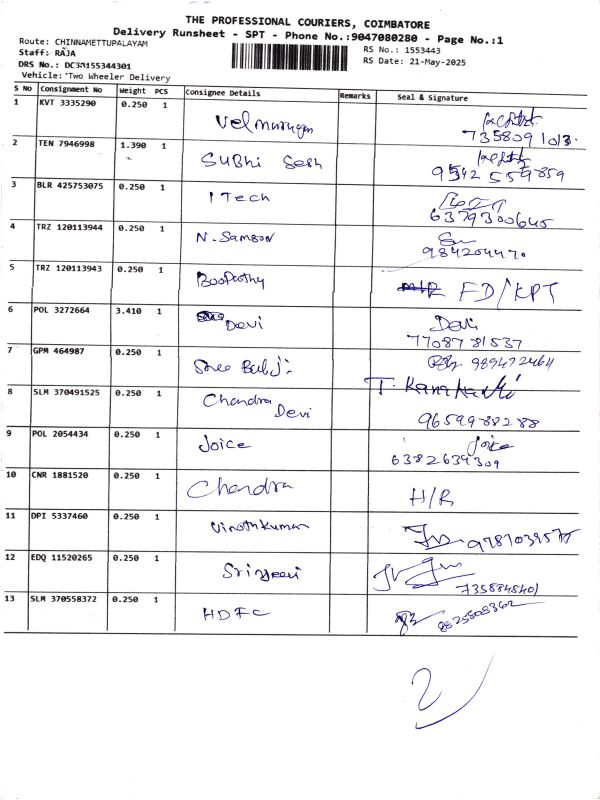 THE PROFESSIONAL COURIERS, COIMBATORE
Delivery Runsheet - SPT - Phone No.:9047080280 - Page No.:1
Route: CHINNAMETTUPALAYAM
Staff: RAJA
RS No.: 1553443
DRS No.: DC3R155344301
RS Date: 21-May-2025
Vehicle: Two Wheeler Delivery
S No Consignment No Weight PCS Consignee Details Remarks Seal & Signature
1 KVT 3335290 0.250 1 Velmurugan
7358091013.
2 TEN 7946998 1.390 1 SUBhi Sesh
9542 559859
3 BLR 425753075 0.250 1 I Tech
6379300645
4 TRZ 120113944 0.250 1 N. Samson
984204470
5 TRZ 120113943 0.250 1 Boopathy FD/KPT
6 POL 3272664 3.410 1 Devi Devi
7708781537
7 GPM 464987 0.250 1 Sree 989472464
8 SLM 370491525 0.250 1 Chandra Devi T.
9659988288
9 POL 2054434 0.250 1 Joice Joice
6382639309
10 CNR 1881520 0.250 1 Chandra H/R
11 DPI 5337460 0.250 1 Vinothkumar
12 EDQ 11520265 0.250 1
7358848401
13 SLM 370558372 0.250 1 HDFC 8525808362
2